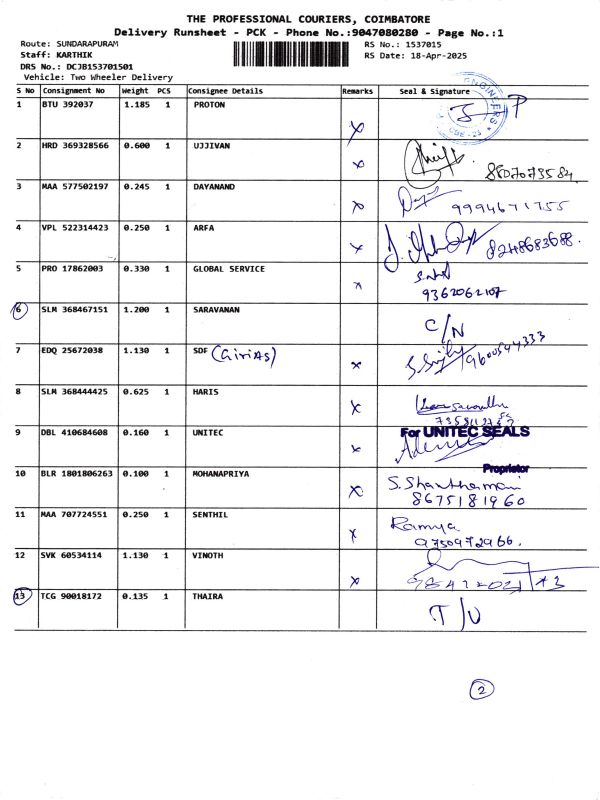 THE PROFESSIONAL COURIERS, COIMBATORE
Delivery Runsheet - PCK - Phone No.:9047080280 - Page No.:1
Route: SUNDARAPURAM
Staff: KARTHIK
DRS No.: DCJB153701501
Vehicle: Two Wheeler Delivery
RS No.: 1537015
RS Date: 18-Apr-2025
S No Consignment No Weight PCS Consignee Details Remarks Seal & Signature
1 BTU 392037 1.185 1 PROTON x
2 HRD 369328566 0.600 1 UJJIVAN x
3 MAA 577502197 0.245 1 DAYANAND x 9994671755
4 VPL 522314423 0.250 1 ARFA x 8248683688.
5 PRO 17862003 0.330 1 GLOBAL SERVICE x
9362062107
6 SLM 368467151 1.200 1 SARAVANAN C/N
7 EDQ 25672038 1.130 1 SDF (GiriAS) x 9600544333
8 SLM 368444425 0.625 1 HARIS x
9 DBL 410684608 0.160 1 UNITEC x For UNITEC SEALS
Proprietor
10 BLR 1801806263 0.100 1 MOHANAPRIYA x S. Shanthamani
8675181960
11 MAA 707724551 0.250 1 SENTHIL x Ramya
9750972966.
12 SVK 60534114 1.130 1 VINOTH x
13 TCG 90018172 0.135 1 THAIRA T/U
2